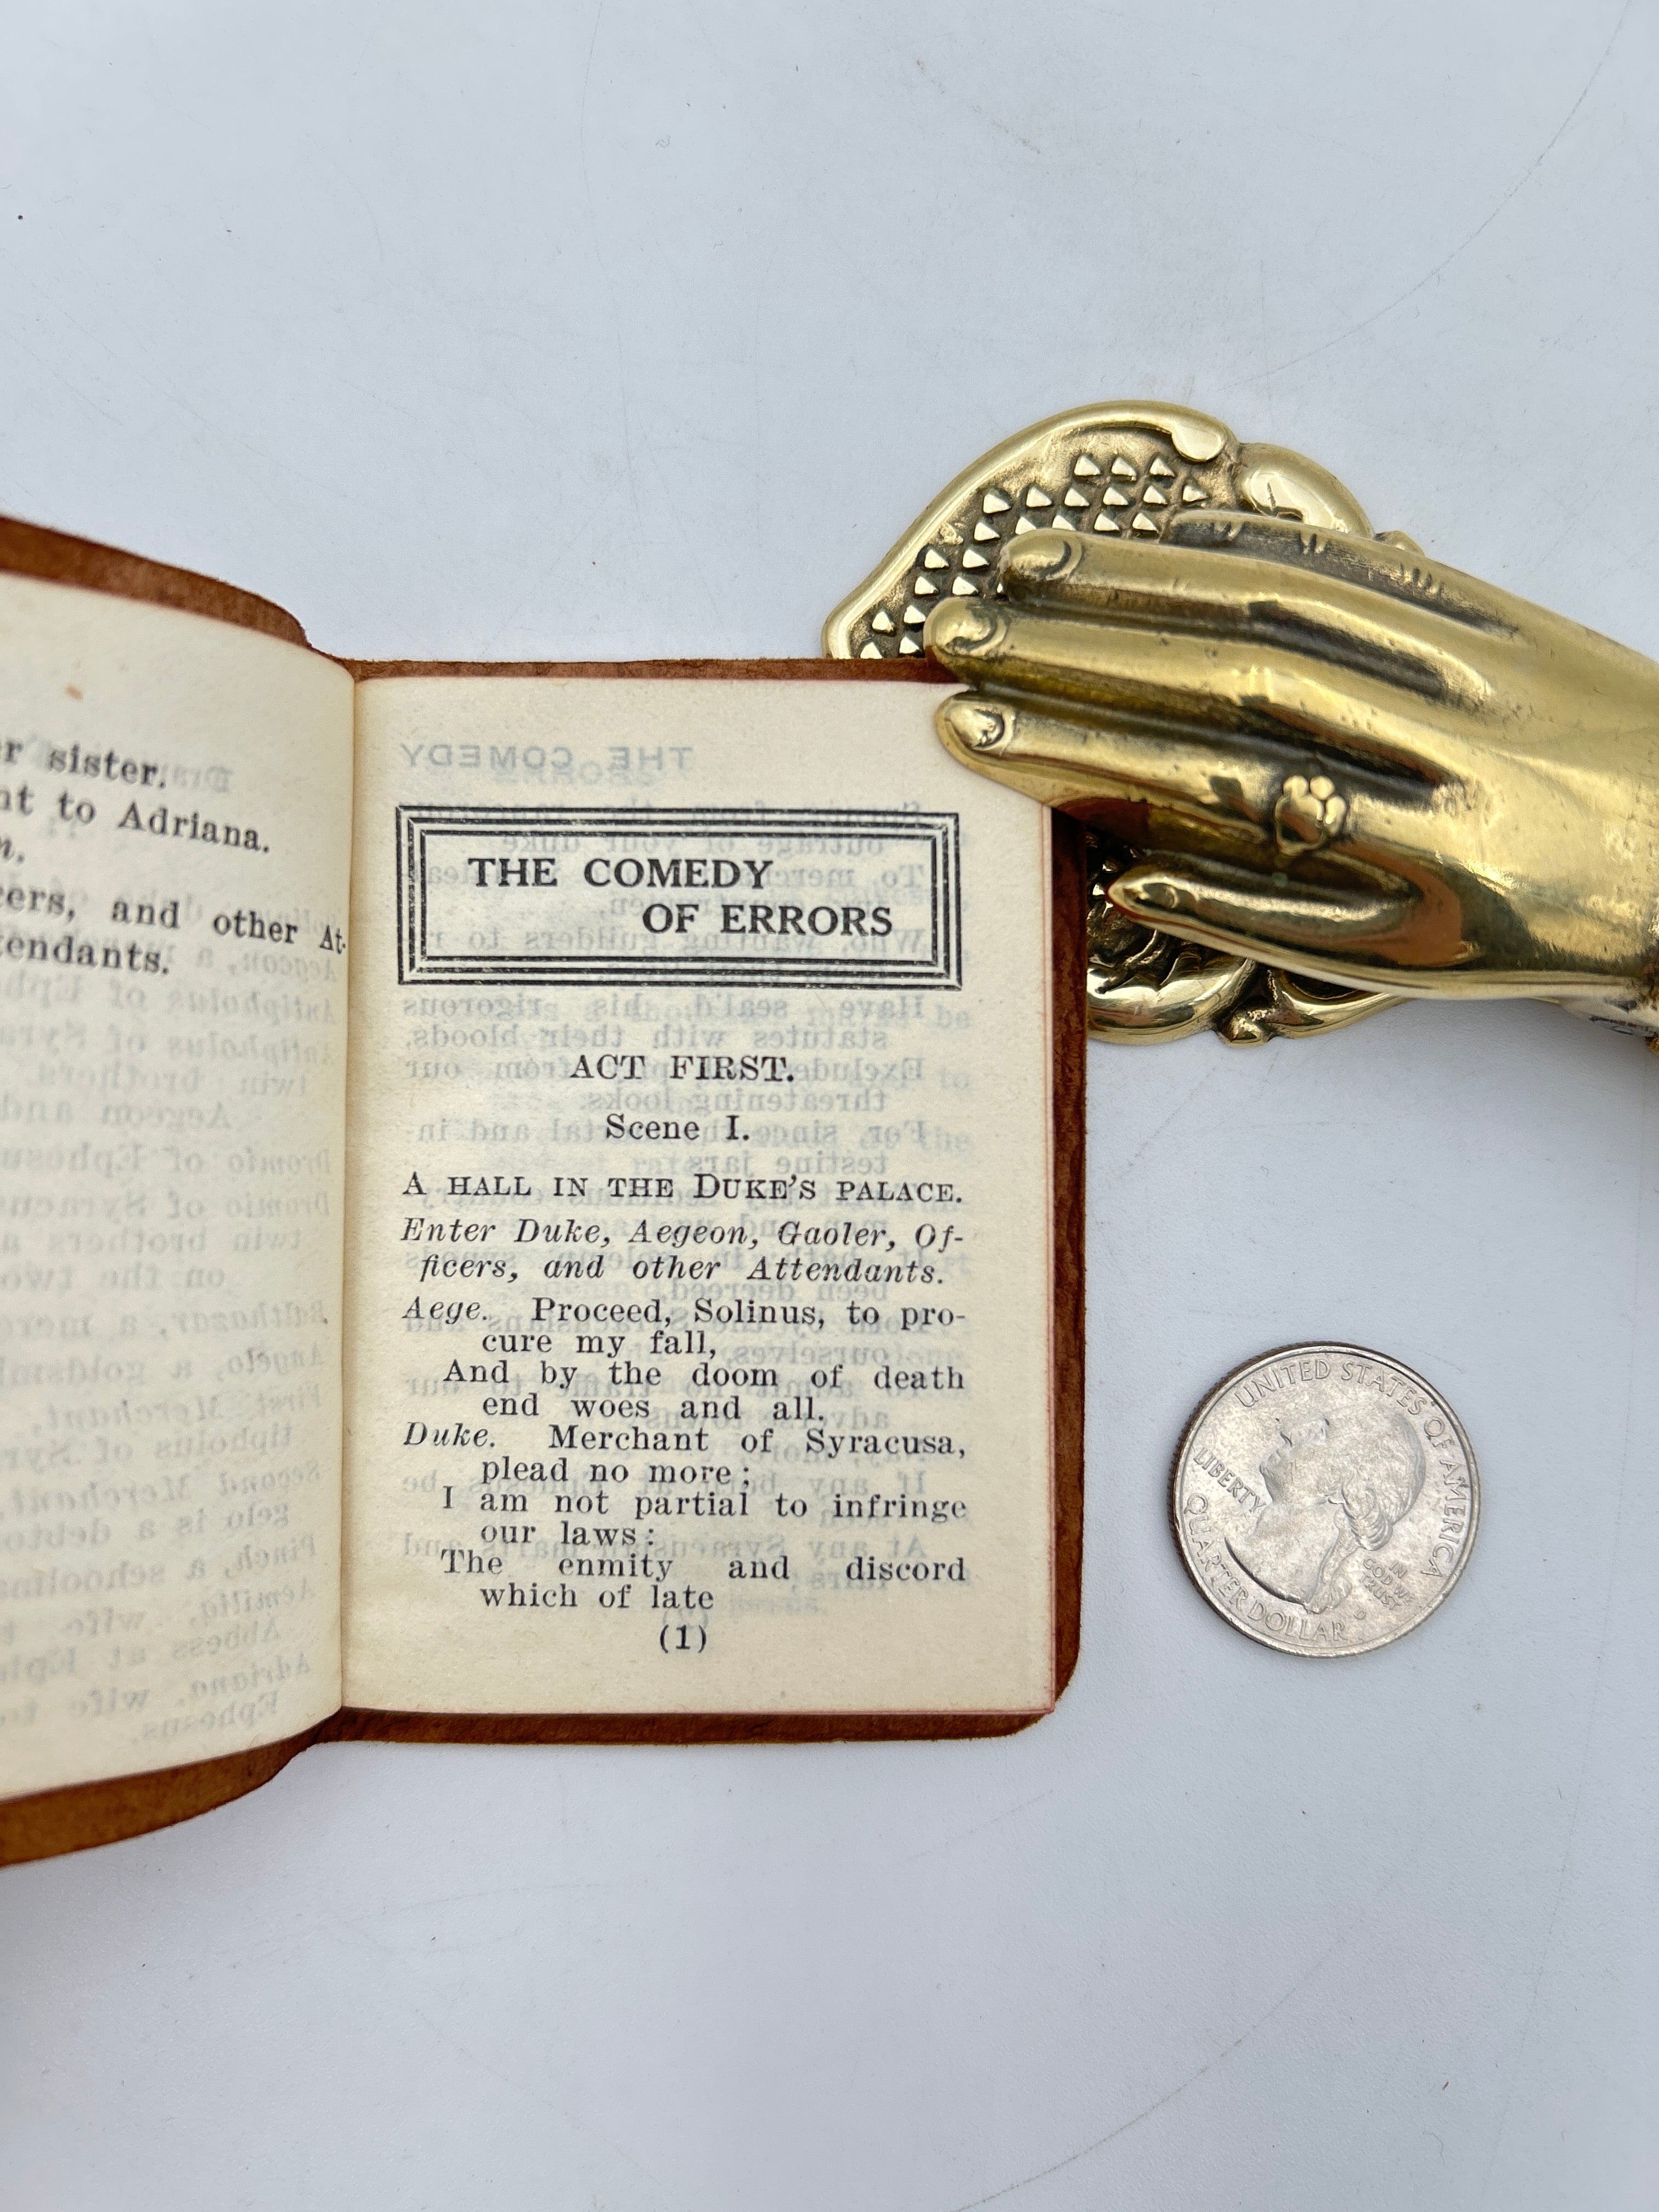 r sister.
nt to Adriana.
n.
cers, and other At-
tendants.
THE COMEDY
OF ERRORS
ACT FIRST.
Scene I.
A HALL IN THE DUKE'S PALACE.
Enter Duke, Aegeon, Gaoler, Of-
ficers, and other Attendants.
Aege. Proceed, Solinus, to pro-
cure my fall,
And by the doom of death
end woes and all.
Duke. Merchant of Syracusa,
plead no more;
I am not partial to infringe
our laws:
The enmity and discord
which of late
(1)
UNITED STATES OF AMERICA
LIBERTY
IN
GOD WE
TRUST
QUARTER DOLLAR